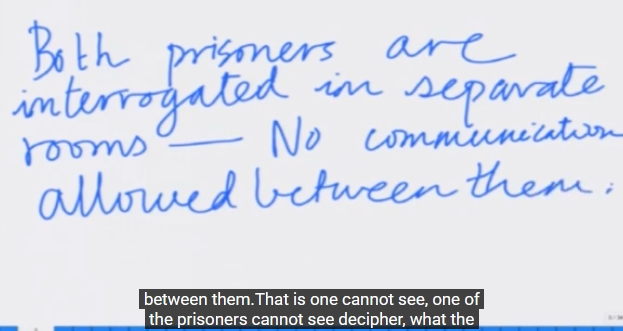 Both prisoners are
interrogated in separate
rooms — No communication
allowed between them.
between them.That is one cannot see, one of
the prisoners cannot see decipher, what the